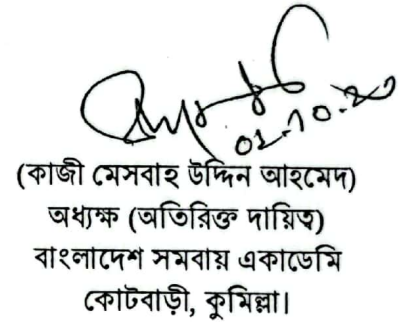 ০২-১০-২০
(কাজী মেসবাহ উদ্দিন আহমেদ)
অধ্যক্ষ (অতিরিক্ত দায়িত্ব)
বাংলাদেশ সমবায় একাডেমি
কোটবাড়ী, কুমিল্লা।